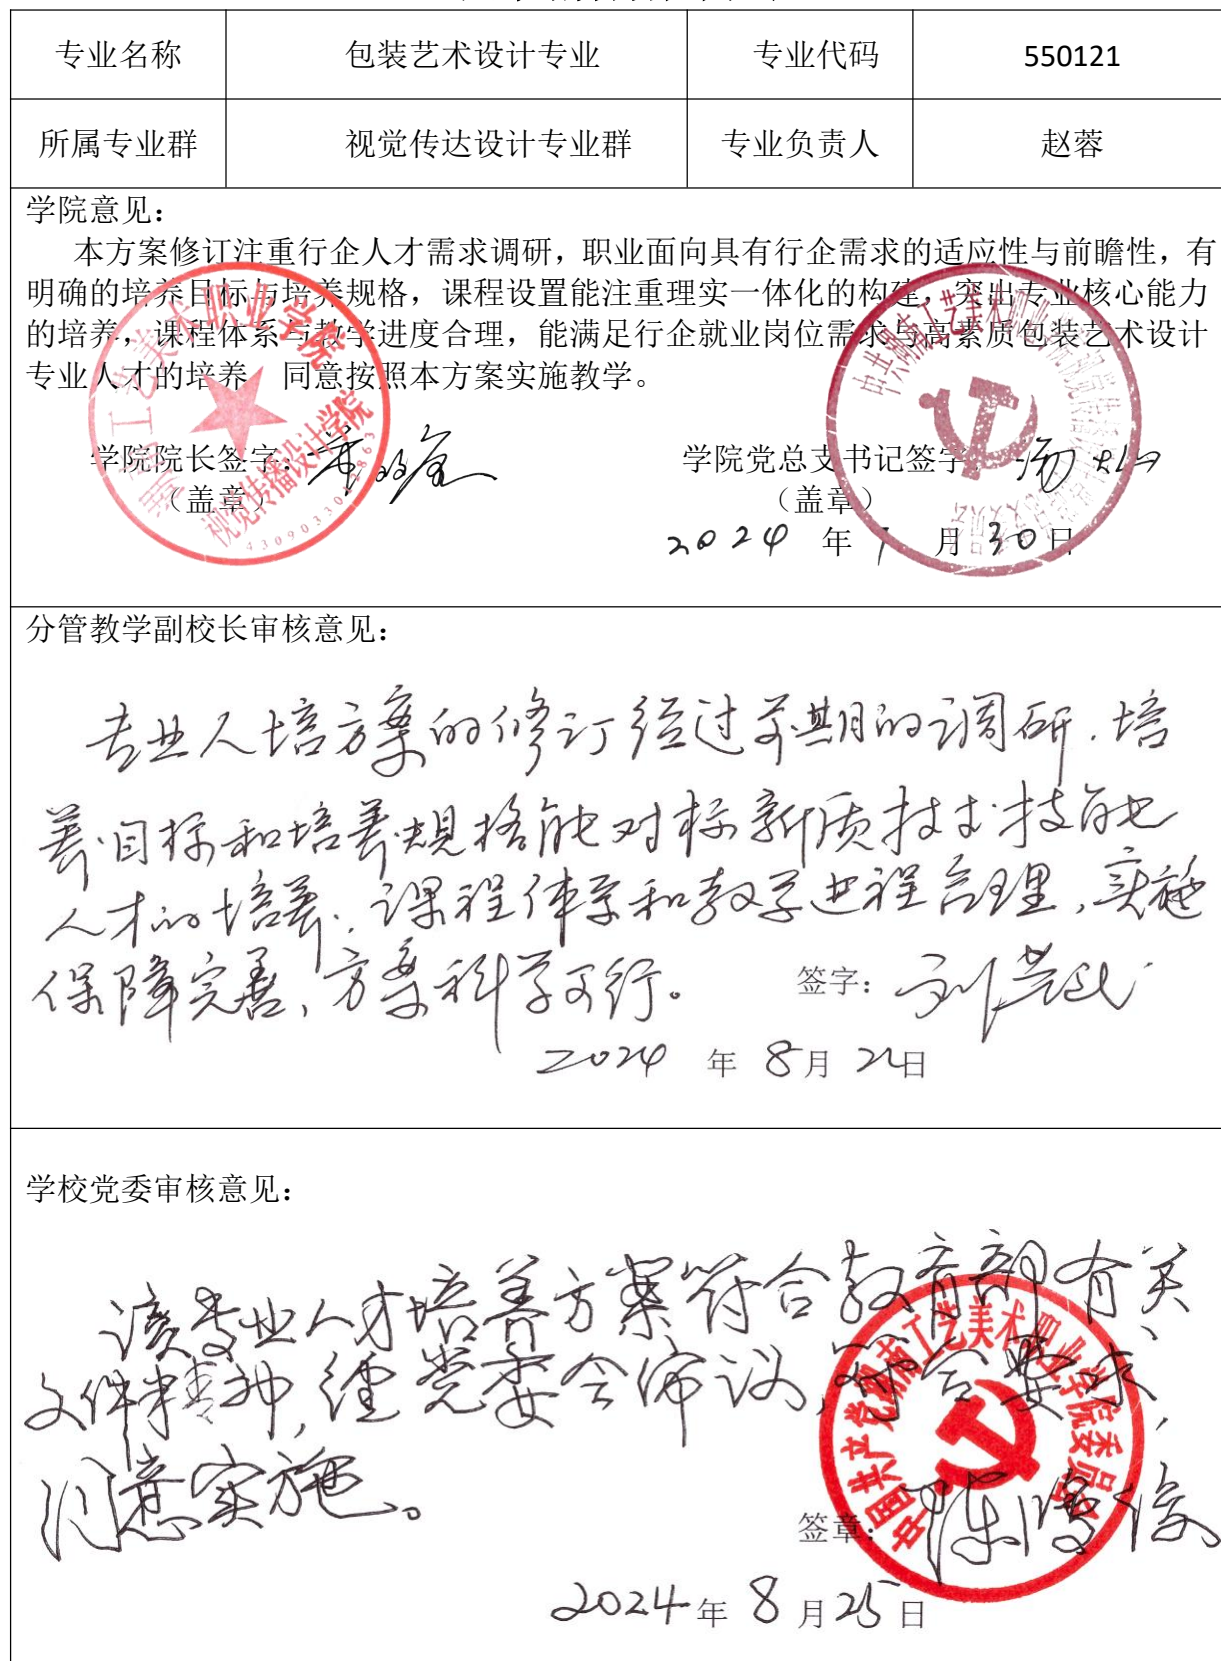 专业名称 包装艺术设计专业 专业代码 550121
所属专业群 视觉传达设计专业群 专业负责人 赵蓉
学院意见：
本方案修订注重行企人才需求调研，职业面向具有行企需求的适应性与前瞻性，有
明确的培养目标与培养规格，课程设置能注重理实一体化的构建，突出专业核心能力
的培养，课程体系与教学进度合理，能满足行企就业岗位需求与高素质包装艺术设计
专业人才的培养 同意按照本方案实施教学。
学院院长签字： 学院党总支书记签字
（盖章） （盖章）
2024 年 月 30 日
湖南工艺美术职业学院
视觉传播设计学院
分管教学副校长审核意见：
专业人培方案的修订经过前期的调研，培
养目标和培养规格能对标新质技术技能
人才的培养，课程体系和教学进程合理，实施
保障完善，方案科学可行。 签字：
2024 年 8月 22日
学校党委审核意见：
该专业人才培养方案符合教育部有关
文件精神，经党委会审议，符合要求，
同意实施。
签章：
中国共产党湖南工艺美术职业学院委员会
2024年 8 月25日